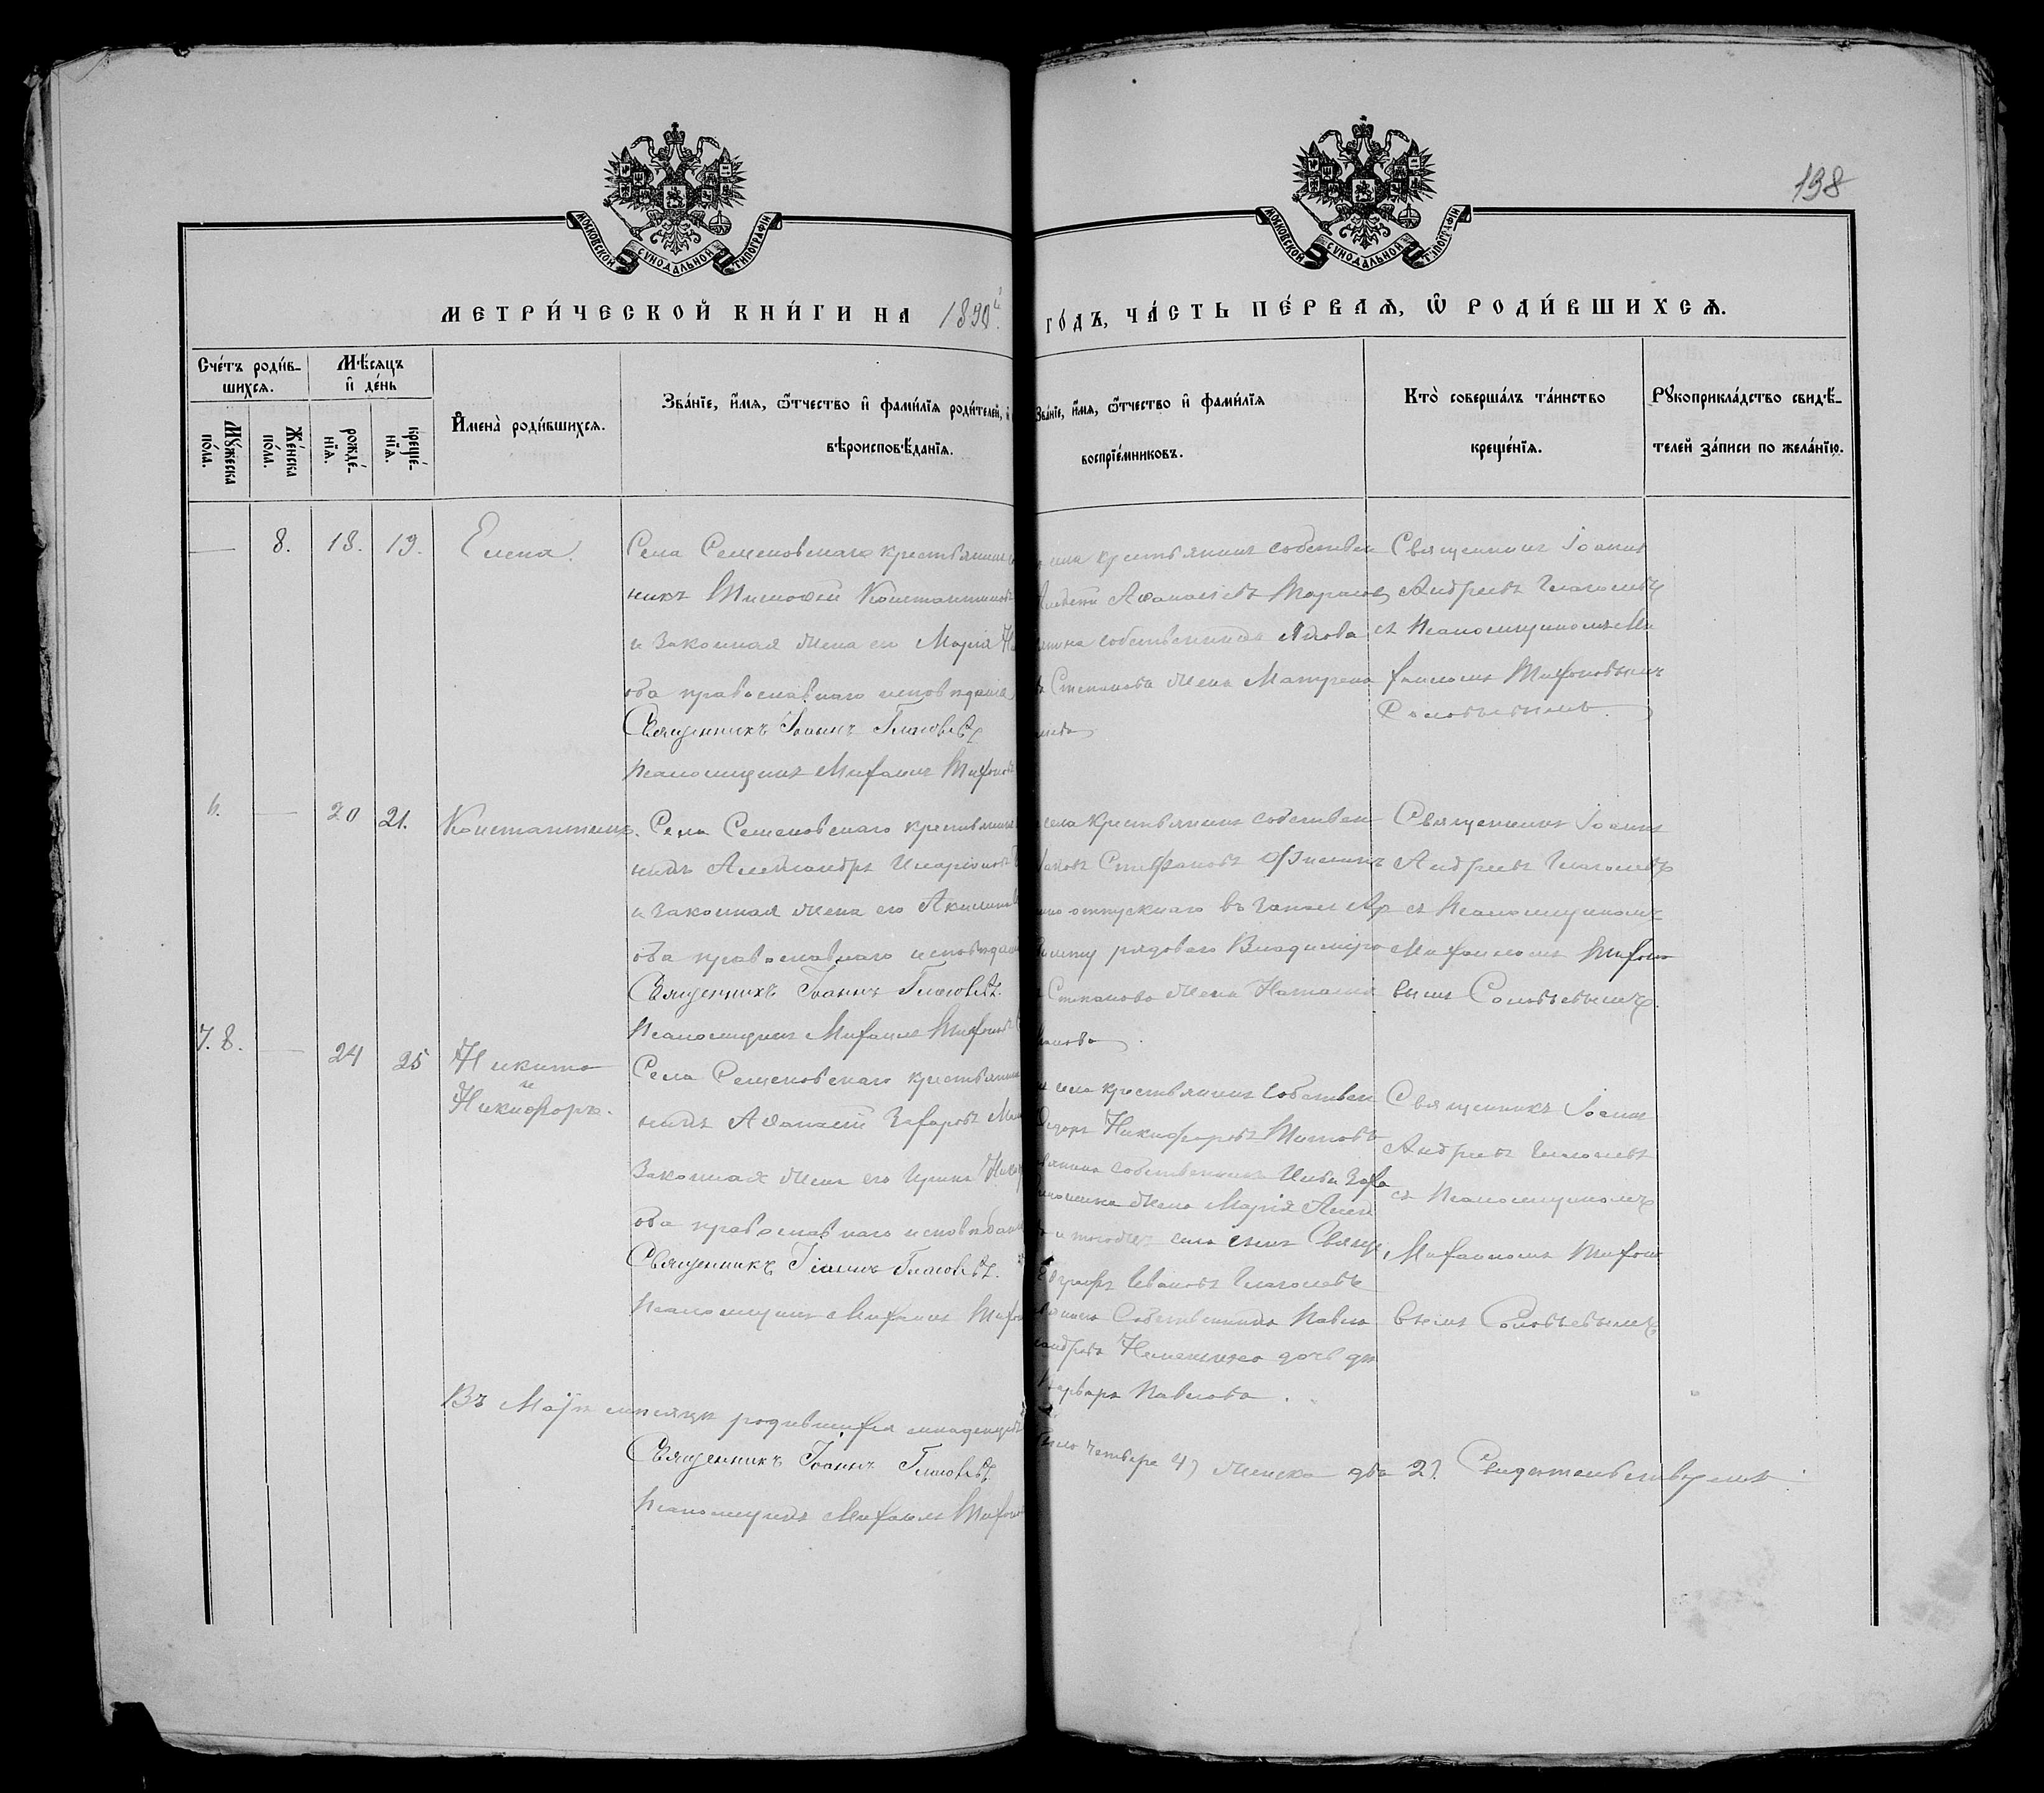 138
МОСКОВСКОЙ СѴНОДАЛЬНОЙ ТИПОГРАФІИ
МОСКОВСКОЙ СѴНОДАЛЬНОЙ ТИПОГРАФІИ
МЕТРИ́ЧЕСКОЙ КНИ́ГИ НА 1890й
ГО́ДЪ, ЧА́СТЬ ПЕ́РВАѦ, Ѿ РОДИ́ВШИХСѦ.
Сче́тъ роди́в-
шихсѧ.
Мꙋ́жеска
по́ла.
Же́нска
по́ла.
Мѣ́сѧцъ
и҆ де́нь
рожде́-
нїѧ.
креще́-
нїѧ.
И҆мена̀ роди́вшихсѧ.
Зва́нїе, и҆́мѧ, ѻ҆́тчество и҆ фами́лїѧ роди́телей, и҆
вѣроисповѣ́данїѧ.
Зва́нїе, и҆́мѧ, ѻ҆́тчество и҆ фами́лїѧ
воспрїе́мниковъ.
Кто̀ соверша́лъ та́инство
креще́нїѧ.
Рꙋкоприкла́дство свидѣ́-
телей за́писи по жела́нїю.
8. 18. 19. Елена.
Села Семеновскаго крестьянинъ
никъ Тимофей Константиновъ
и законная жена его Марія
оба православнаго исповѣданія
Священникъ Іоаннъ Глаголевъ
Псаломщикъ Михаилъ Тихоновъ
села крестьянинъ собствен
Аѳанасіевъ
собственника
Степанова жена Матрена
Священникъ Іоаннъ
Андреевъ Глаголевъ
съ Псаломщикомъ Ми
хаиломъ Тихоновымъ
Соловьевымъ
6. 20 21. Константинъ.
Села Семеновскаго крестьянинъ
никъ Александръ Иларіоновъ
и законная жена его Акилина
оба православнаго исповѣданія
Священникъ Іоаннъ Глаголевъ.
Псаломщикъ Михаилъ Тихоновъ
села крестьянинъ собствен
Стефановъ
отпускнаго въ запасъ Ар
рядоваго Владиміра
Степанова жена Наталія
Священникъ Іоаннъ
Андреевъ Глаголевъ
съ Псаломщикомъ
Михаиломъ Тихоно
вымъ Соловьевымъ.
7. 8. 24 25 Никита
и
Никифоръ.
Села Семеновскаго крестьянинъ
никъ Аѳанасій Захаровъ
законная жена его Ирина
оба православнаго исповѣданія
Священникъ Іоаннъ Глаголевъ.
Псаломщикъ Михаилъ
села крестьянинъ собствен
Никифоровъ Титовъ
собственника Ильи Заха
жена Марія Алек
и того же села сынъ Свящ.
Ивановъ Глаголевъ
Собственника Павла
дочь дѣ
Варвара Павлова.
Священникъ Іоаннъ
Андреевъ Глаголевъ
съ Псаломщикомъ
Михаиломъ Тихоно
вымъ Соловьевымъ
Въ Маѣ мѣсяцѣ родившихся младенцевъ
было четыре 4, женска два 2). Свидетельствуемъ
Священникъ Іоаннъ Глаголевъ
Псаломщикъ Михаилъ Тихоно